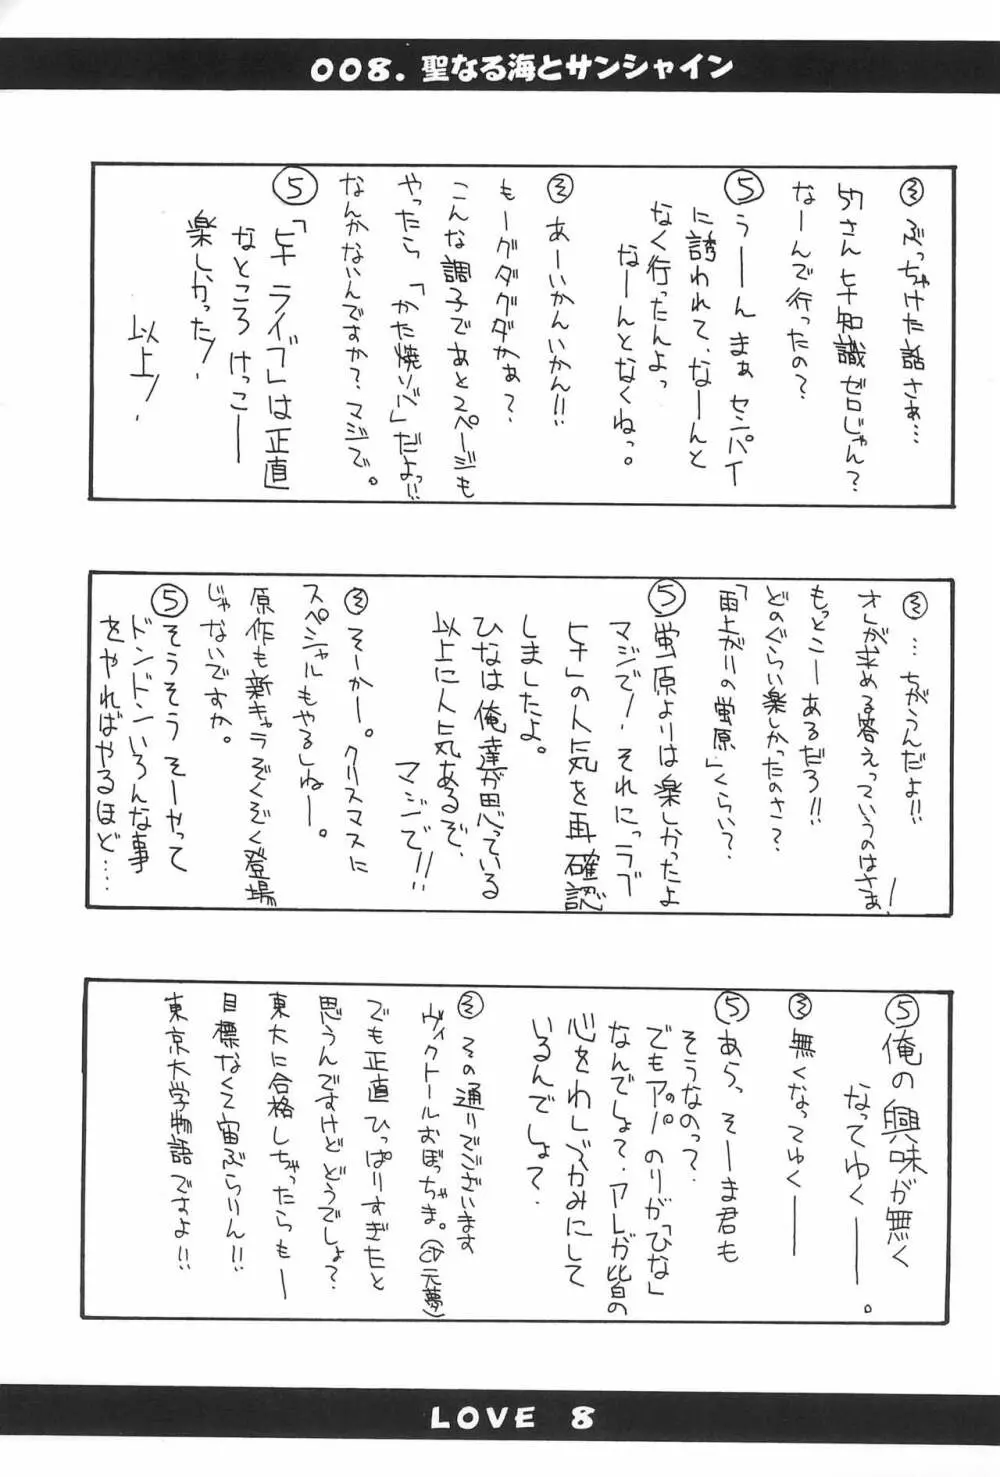 008. 聖なる海とサンシャイン
そ ぶっちゃけた話さぁ…
57さんヒナ知識ゼロじゃん?
なーんで行ったの?
5 うーんまぁセンパイ
に誘われて、なーんと
なく行ったんよっ
なーんとなくねっ。
そ あーいかんいかん!!
もーグダグダかぁ?
こんな調子であと2ページも
やったら「かた焼ソバ」だよっ!!
なんかないんですか?マジで。
5 「ヒナライブ」は正直
なところけっこー
楽しかった!
以上!
そ …ちがうんだよ!!
オレが求める答えっていうのはさぁ!
もっとこーあるだろ!!
どのぐらい楽しかったのさ?
「雨上がりの蛍原」くらい?
5 蛍原よりは楽しかったよ
マジで!それに「ラブ
ヒナ」の人気を再確認
しましたよ。
ひなは俺達が思っている
以上に人気あるぞ、
マジで!!
そ そーかー。クリスマスに
スペシャルもやるしねー。
原作も新キャラぞくぞく登場
じゃないですか。
5 そうそうそーやって
ドンドンいろんな事
をやればやるほど……
5 俺の興味が無く
なってゆくー。
そ 無くなってゆくー
5 あら、そーま君も
そうなのっ?
でもアパのりが「ひな」
なんでしょ?アレが皆の
心をわしづかみにして
いるんでしょ?
そ その通りでございます
ヴィクトールおぼっちゃま。(元夢)
でも正直ひっぱりすぎたと
思うんですけどどうでしょ?
東大に合格しちゃったらもー
目標なくて宙ぶらりん!!
東京大学物語ですよ!!
LOVE 8